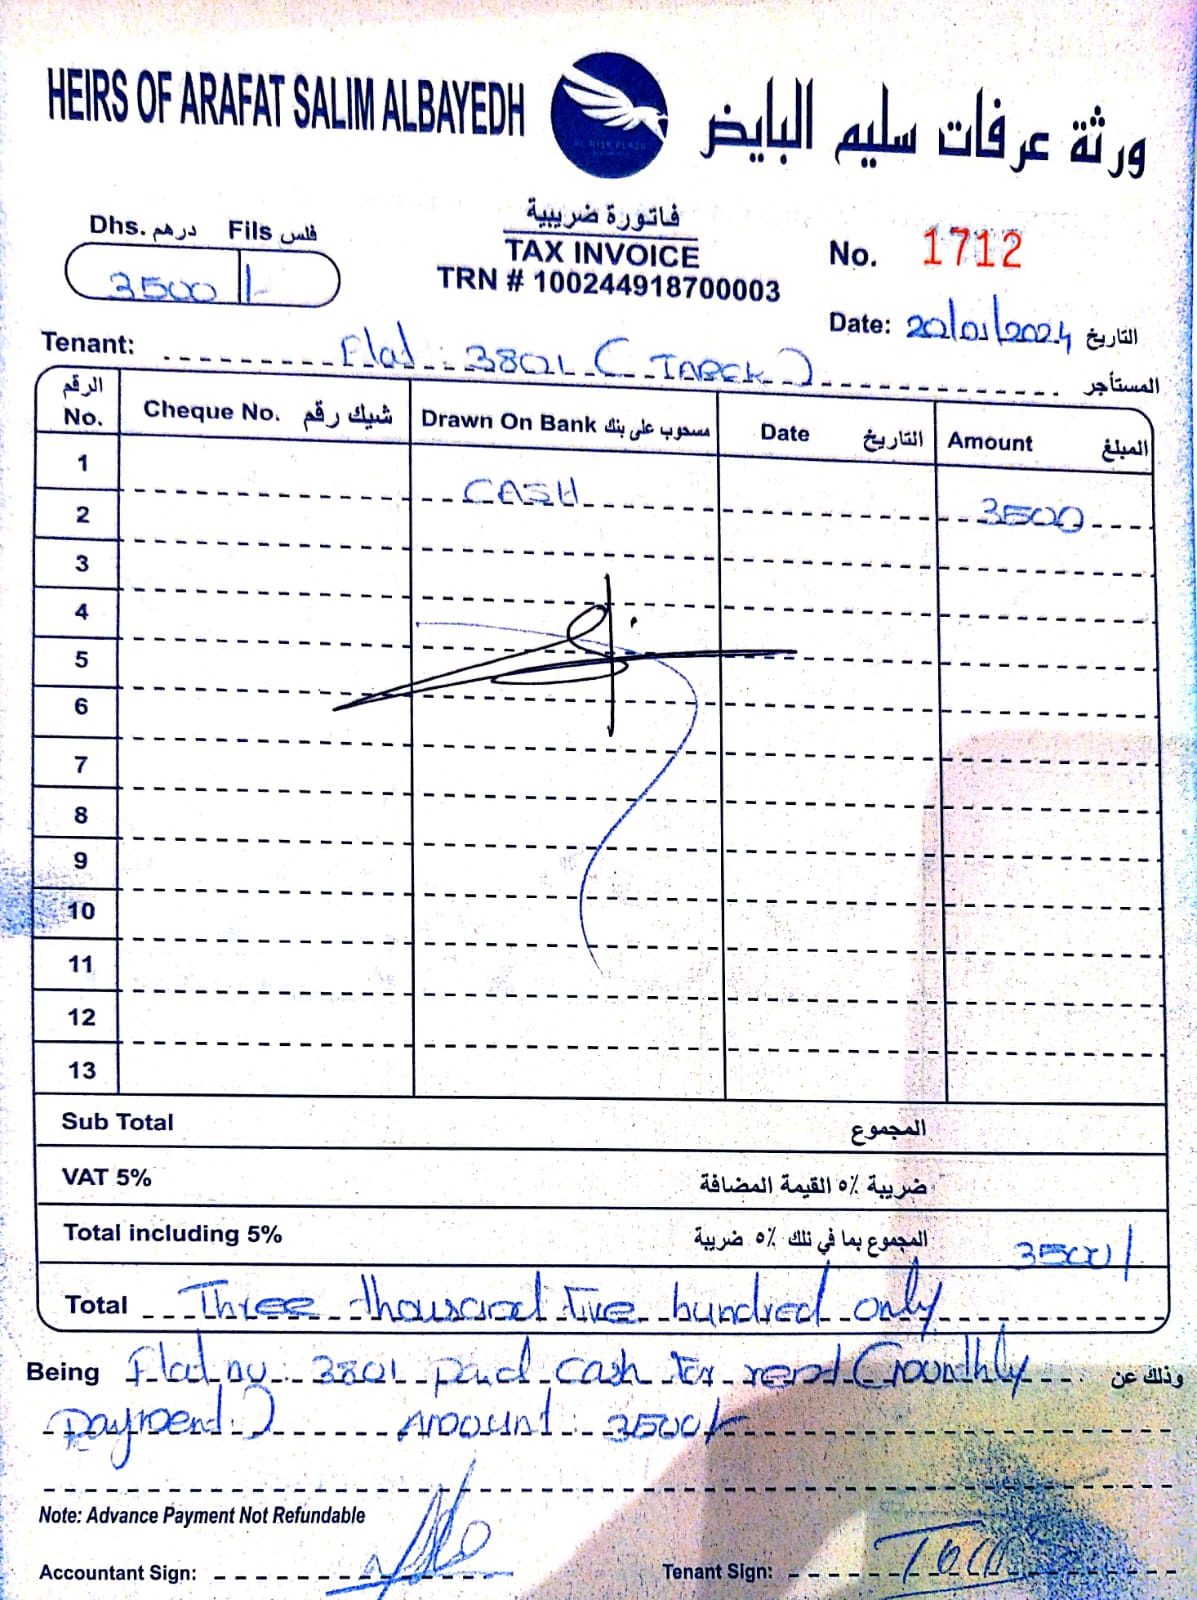 HEIRS OF ARAFAT SALIM ALBAYEDH
ورثة عرفات سليم البايض
Dhs. درهم Fils فلس
3500 /-
فاتورة ضريبية
TAX INVOICE
TRN # 100244918700003
No. 1712
Date: 20/01/2024 التاريخ
Tenant: Flat: 3801 (TAREK) المستأجر
الرقم No. Cheque No. شيك رقم Drawn On Bank مسحوب على بنك Date التاريخ Amount المبلغ
1
CASH 3500
2
3
4
5
6
7
8
9
10
11
12
13
Sub Total المجموع
VAT 5% ضريبة ٥% القيمة المضافة
Total including 5% المجموع بما في ذلك ٥% ضريبة 3500/
Total Three thousand five hundred only
Being Flat no: 3801 paid cash for rent (monthly وذلك عن
Payment) Amount: 3500/-
Note: Advance Payment Not Refundable
Accountant Sign: Tenant Sign: